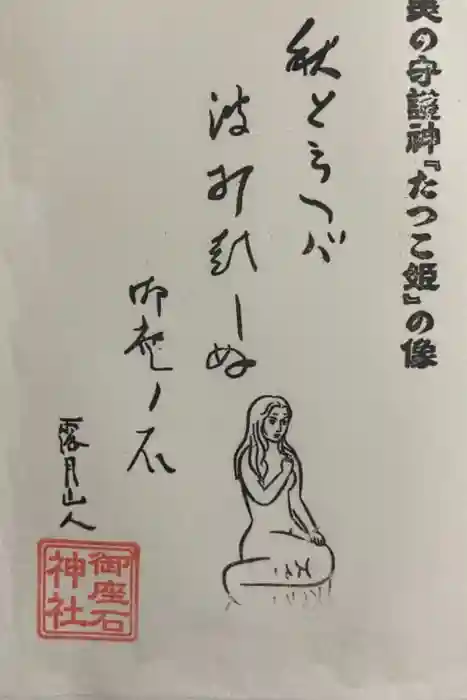 美の守護神『たつこ姫』の像
秋と云へバ
波
しぬ
御座ノ石
露月山人
御座石
神社